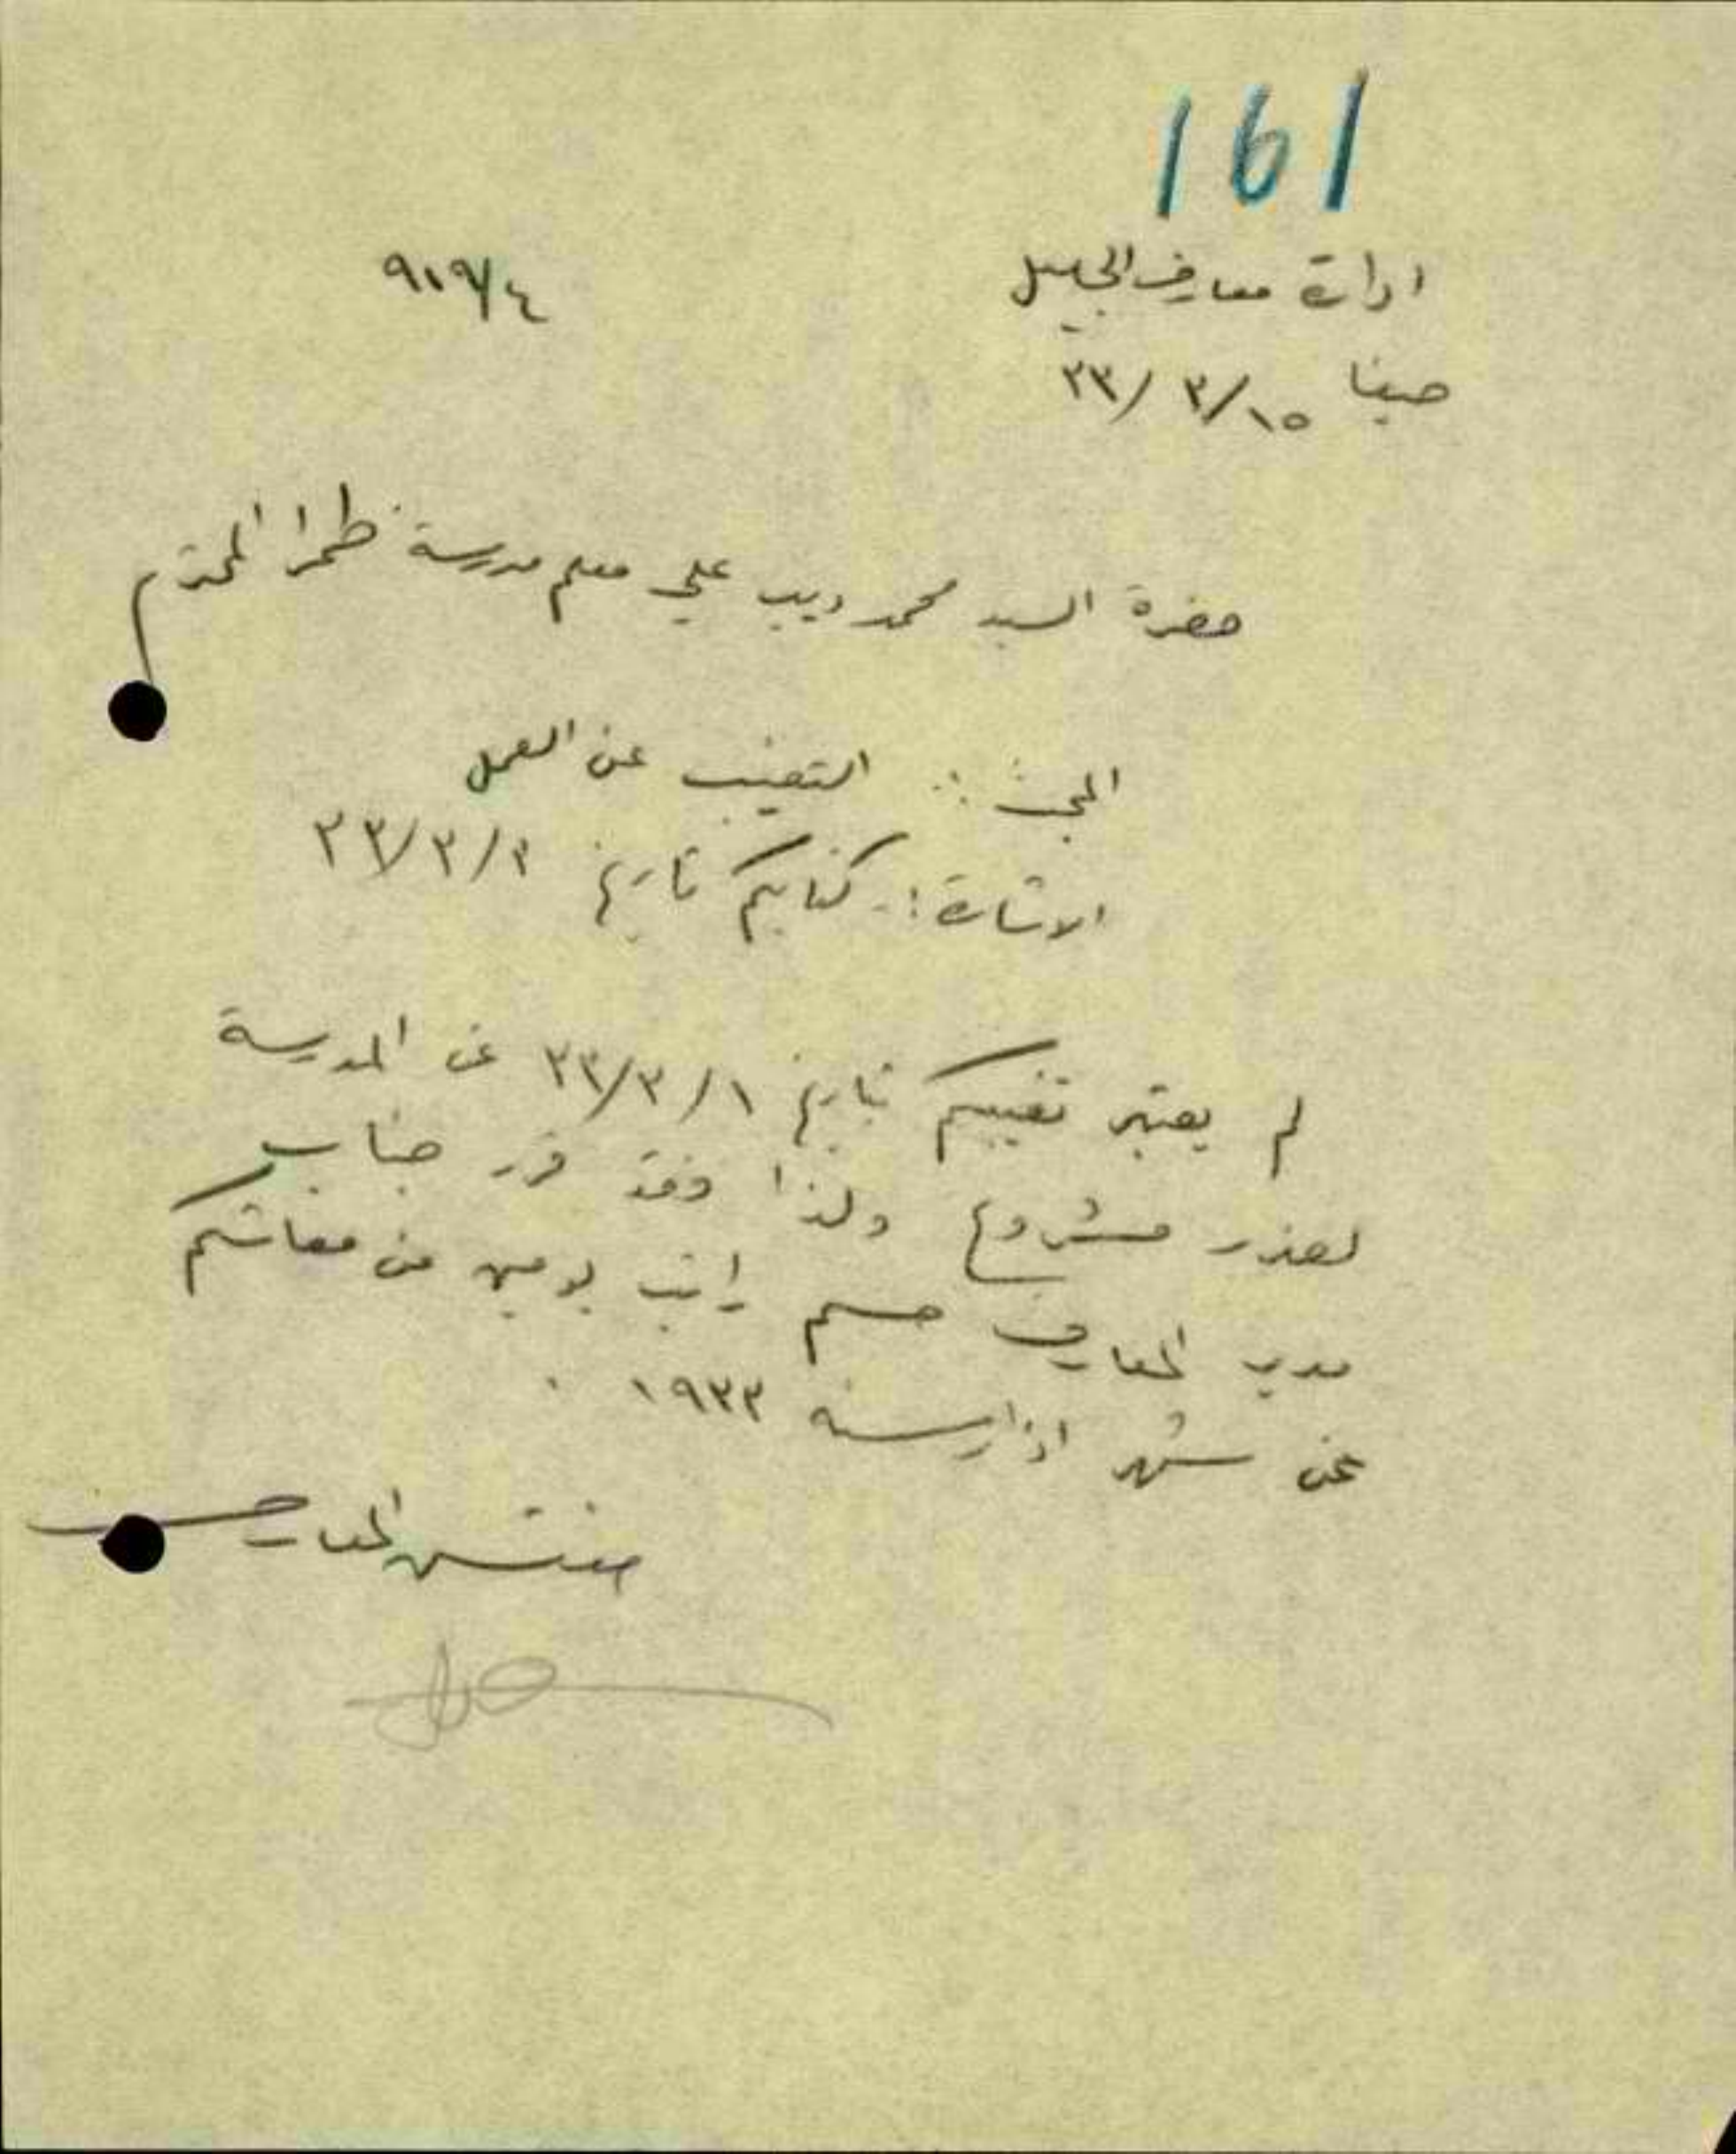 161
ادارة معارف الجليل
٩١٩/٤
حيفا ١٥/٣/٣٣
حضرة السيد محمد ديب علي معلم مدرسة طمرا المحترم
المبحث :- التغيب عن العمل
الاشارة :- كتابكم تاريخ ٣٣/٣/٢
لم يعتبر تغيبكم بتاريخ ٣٣/٣/١ عن المدرسة
لعذر مشروع ولذا فقد قرر جناب
مدير المعارف حسم راتب يومين من معاشكم
عن شهر اذار سنة ١٩٣٣ .
مفتش المعارف